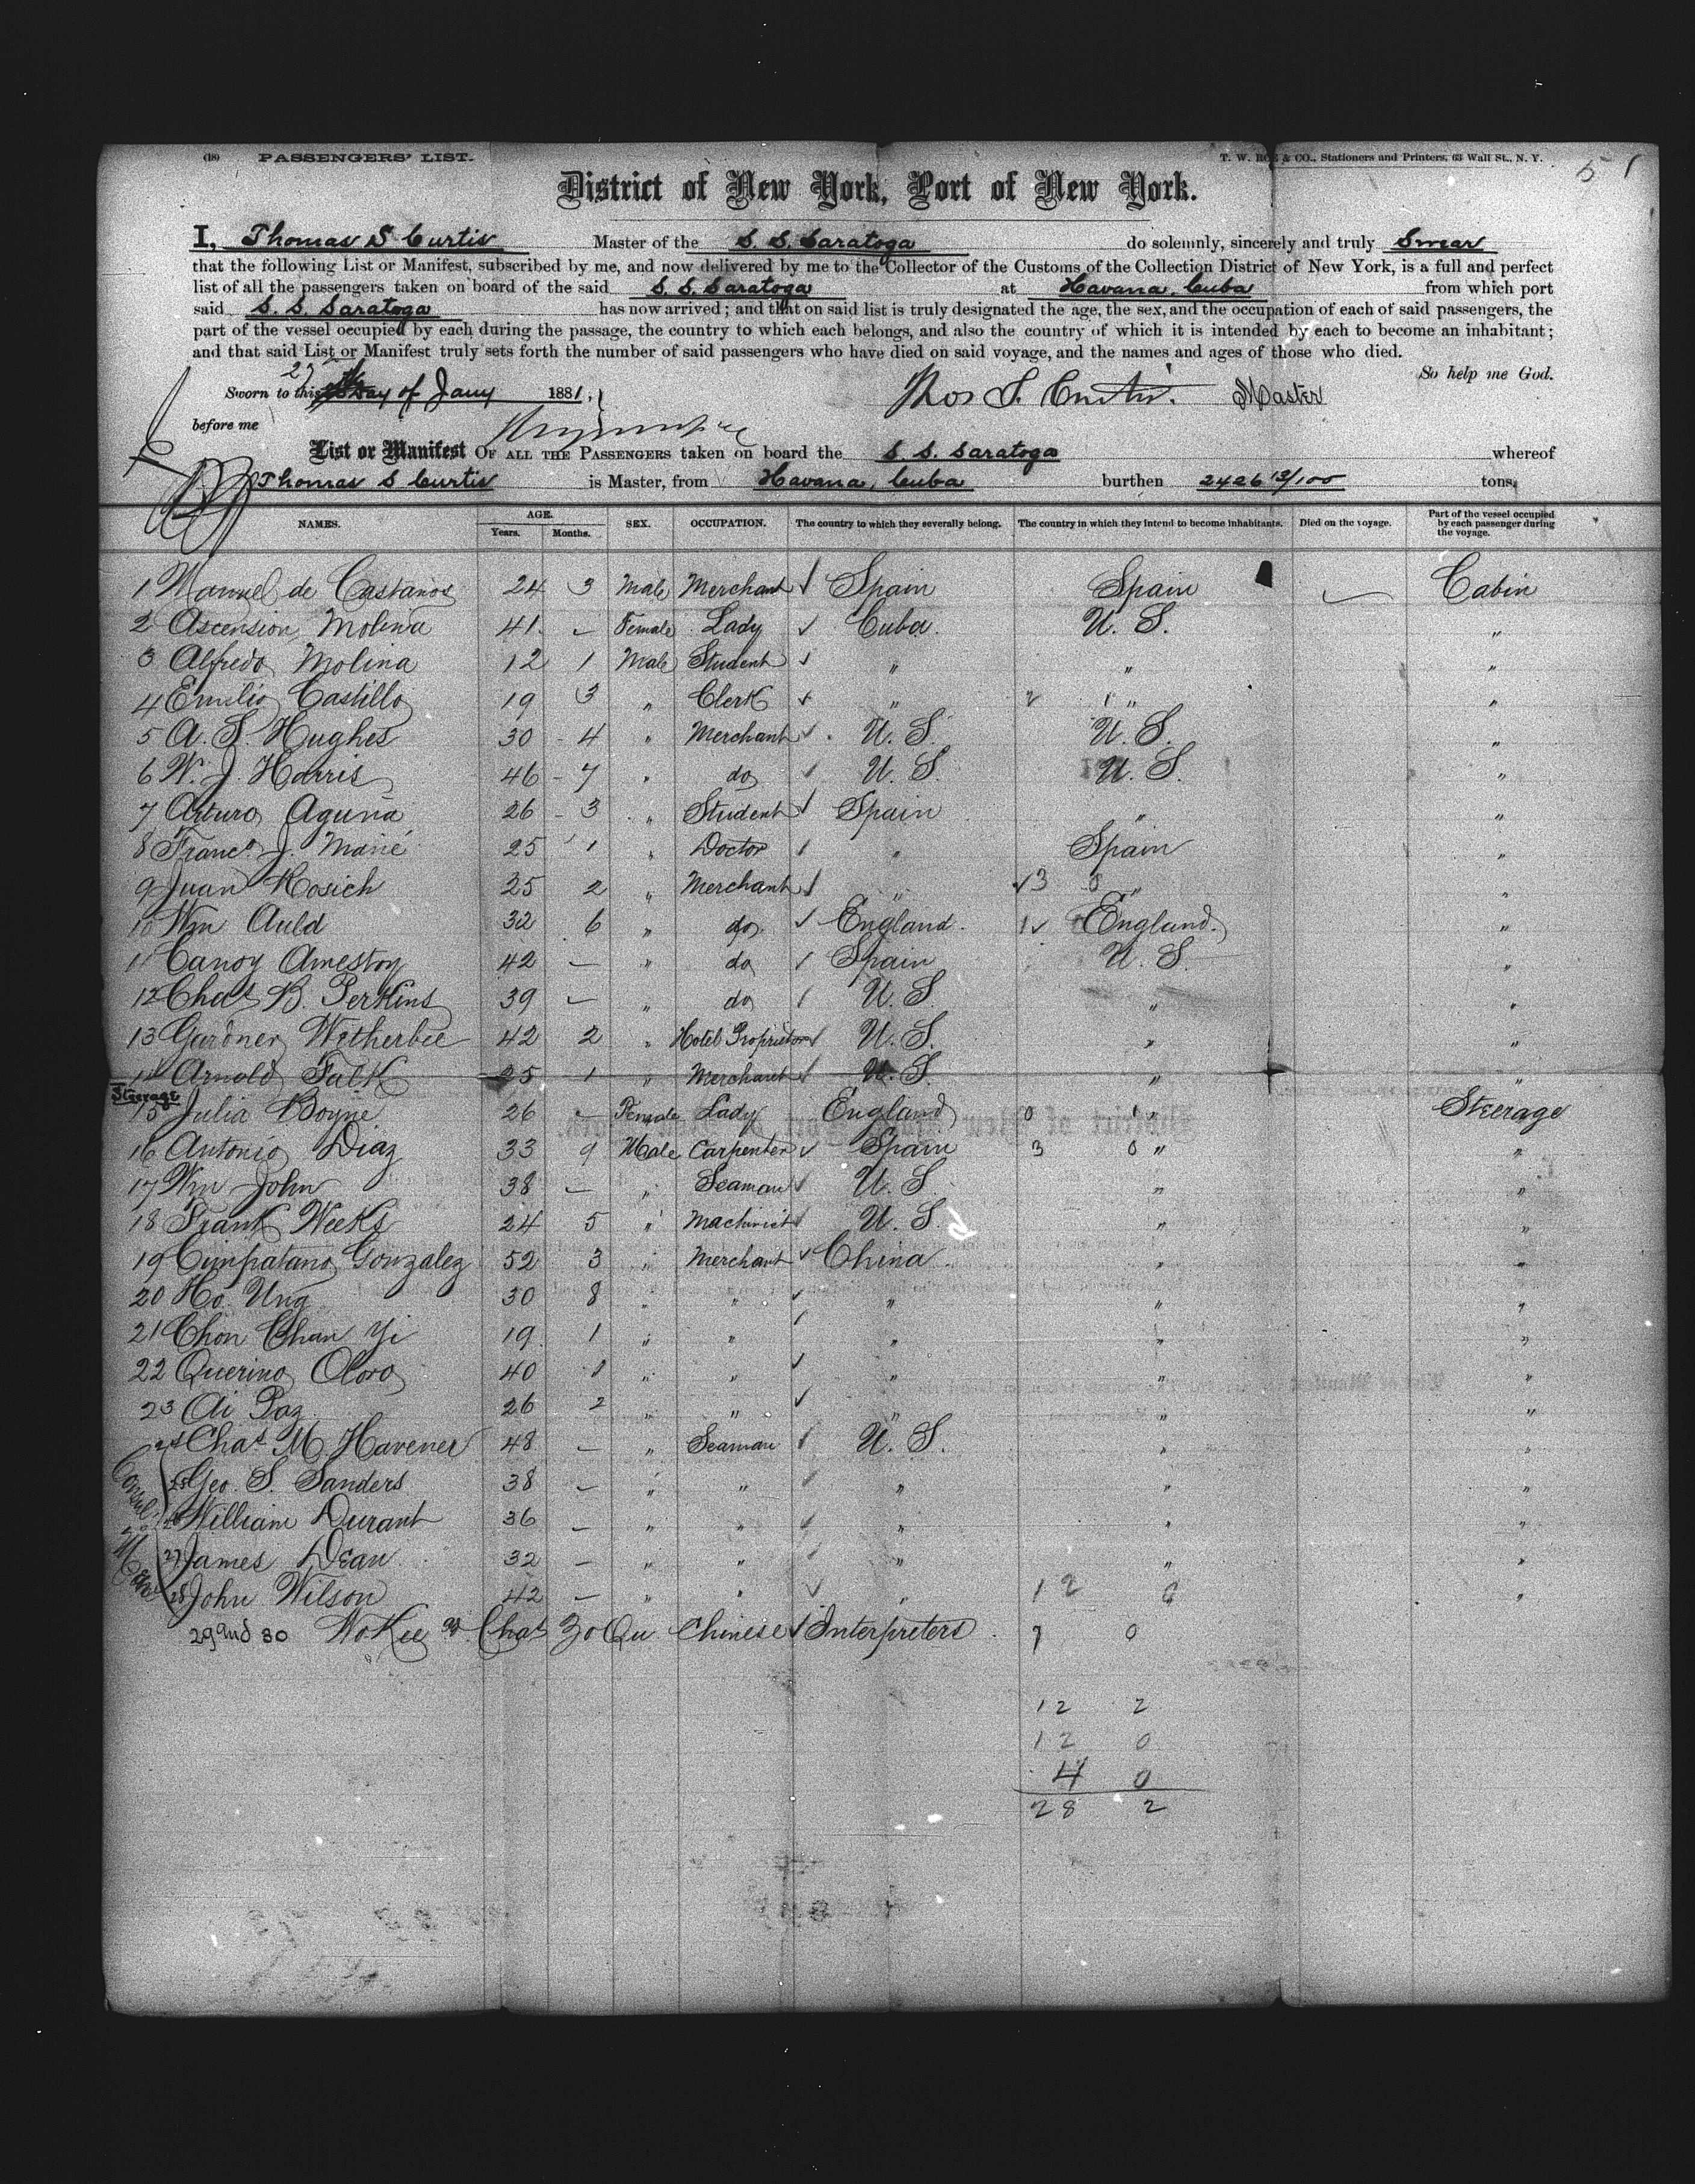 (18) PASSENGERS' LIST. T. W. ROE & CO., Stationers and Printers, 63 Wall St., N. Y. 5 1
District of New York, Port of New York.
I, Thomas S Curtis Master of the S. S. Saratoga do solemnly, sincerely and truly Swear
that the following List or Manifest, subscribed by me, and now delivered by me to the Collector of the Customs of the Collection District of New York, is a full and perfect
list of all the passengers taken on board of the said S. S. Saratoga at Havana, Cuba from which port
said S. S. Saratoga has now arrived; and that on said list is truly designated the age, the sex, and the occupation of each of said passengers, the
part of the vessel occupied by each during the passage, the country to which each belongs, and also the country of which it is intended by each to become an inhabitant;
and that said List or Manifest truly sets forth the number of said passengers who have died on said voyage, and the names and ages of those who died.
So help me God.
27
Sworn to this day of Jany 1881. Thos S. Curtis. Master
before me
List or Manifest OF ALL THE PASSENGERS taken on board the S. S. Saratoga whereof
Thomas S Curtis is Master, from Havana, Cuba burthen 2426 13/100 tons,
NAMES. AGE. Years. Months. SEX. OCCUPATION. The country to which they severally belong. The country in which they intend to become inhabitants. Died on the voyage. Part of the vessel occupied by each passenger during the voyage.
1 Manuel de Castaños 24 3 Male Merchant ✓ Spain Spain Cabin
2 Ascension Molina 41 - Female Lady ✓ Cuba. U. S. "
3 Alfredo Molina 12 1 Male Student ✓ " " "
4 Emilio Castillo 19 3 " Clerk ✓ " 2 1 " "
5 A. S. Hughes 30 - 4 " Merchant ✓ U. S. U. S. "
6 W. J. Harris 46 - 7 " do ✓ U. S. U. S. "
7 Arturo Aguna 26 - 3 " Student ✓ Spain " "
8 Franco. J. Marie 25 1 " Doctor ✓ " Spain "
9 Juan Rosich 25 2 " Merchant ✓ " ✓3 0 " "
10 Wm Auld 32 6 " do ✓ England. 1✓ England. "
11 Canoy Amestoy 42 - " do ✓ Spain U. S. "
12 Chas B. Perkins 39 - " do ✓ U. S. " "
13 Gardner Wetherbee 42 2 " Hotel Proprietor ✓ U. S. " "
14 Arnold Falk 25 1 " Merchant ✓ U. S. " "
Steerage
15 Julia Boyne 26 - Female Lady England 0 1 " Steerage
16 Antonio Diaz 33 9 Male Carpenter ✓ Spain 3 0 " "
17 Wm John 38 - " Seaman ✓ U. S. " "
18 Frank Weeks 24 5 " Machinist ✓ U. S. " "
19 Cimpatano Gonzalez 52 3 " Merchant ✓ China. " "
20 Ho Ung 30 8 " " ✓ " " "
21 Chon Chan Yi 19 1 " " ✓ " " "
22 Querino Oloro 40 1 " " ✓ " " "
23 Ai Paz 26 2 " " ✓ " " "
24 Chas M. Havener 48 - " Seaman ✓ U. S. " "
25 Geo. S. Sanders 38 - " " ✓ " " "
26 William Durant 36 - " " ✓ " " "
27 James Dean 32 - " " ✓ " " "
28 John Wilson 42 - " " ✓ " 12 0 "
29 and 30 Wo Kee & Chas Zo Qu Chinese ✓ Interpreters. 7 0
12 2
12 0
4 0
28 2